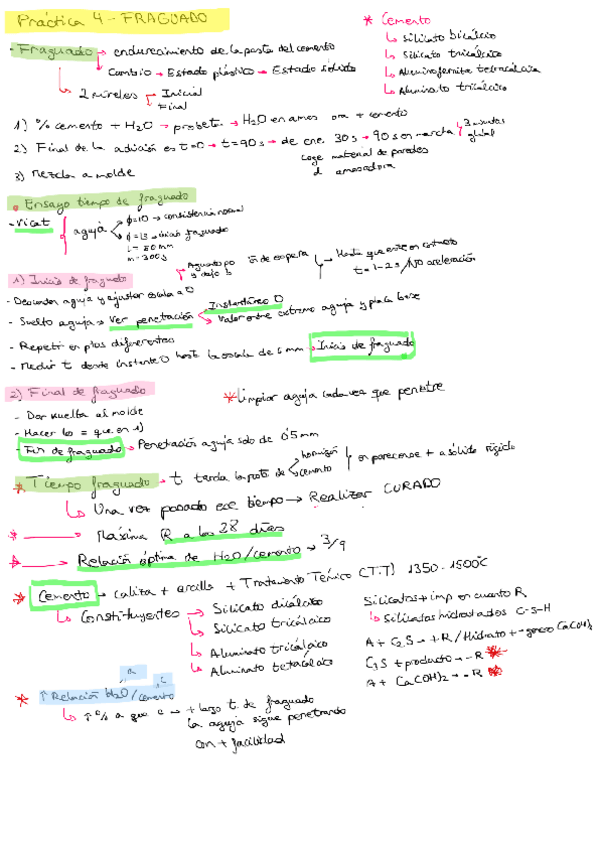 Práctica 4 - FRAGUADO
* Cemento
↳ Silicato bicálcico
↳ Silicato tricálcico
↳ Aluminoferrita tetracálcica
↳ Aluminato tricálcico
- Fraguado → endurecimiento de la pasta del cemento
↳ Cambio → Estado plástico → Estado sólido
↳ 2 niveles → Inicial
Final
1) % cemento + H2O → probeta → H2O en amasadora + cemento
2) Final de la adición es t=0 → t=90s → 30s → 90s en marcha 3 minutos
coge material de paredes
d amasadora
3) Mezcla a molde
• Ensayo tiempo de fraguado
- Vicat { aguja
φ=10 → consistencia normal
inicio fraguado
1) Inicio de fraguado
t de espera
Hasta que esté en contacto
t = 1-2s / NO aceleración
- Descender aguja y ajustar escala a 0
- Suelto aguja → Ver penetración
Instantáneo 0
Valor entre extremo aguja y placa base
- Repetir en ptos diferentes
- Medir t desde instante 0 hasta la escala de 6 mm → Inicio de fraguado
2) Final de fraguado
* Limpiar aguja cada vez que penetre
- Dar vuelta al molde
- Hacer lo = que en 1)
- Fin de fraguado → Penetración aguja solo de 0'5 mm
* Tiempo fraguado → t tarda la pasta de
hormigón
cemento
en parecerse + a sólido rígido
↳ Una vez pasado ese tiempo → Realizar CURADO
* → Máxima R a los 28 días
* → Relación óptima de H2O/cemento →
* Cemento → caliza + arcilla + Tratamiento Térmico (T.T) 1350 - 1500°C
↳ Constituyentes → Silicato dicálcico
↳ Silicato tricálcico
↳ Aluminato tricálcico
↳ Aluminato tetracálcico
Silicatos + imp en cuanto R
↳ Silicatos hidratados C-S-H
A + C2S → + R / Hidrato + Ca(OH)2
C3S + producto → - R *
A + Ca(OH)2 → - R *
* ↑ Relación H2O/cemento
↳ ↑ % a que c → + largo t. de fraguado
la aguja sigue penetrando
con + facilidad